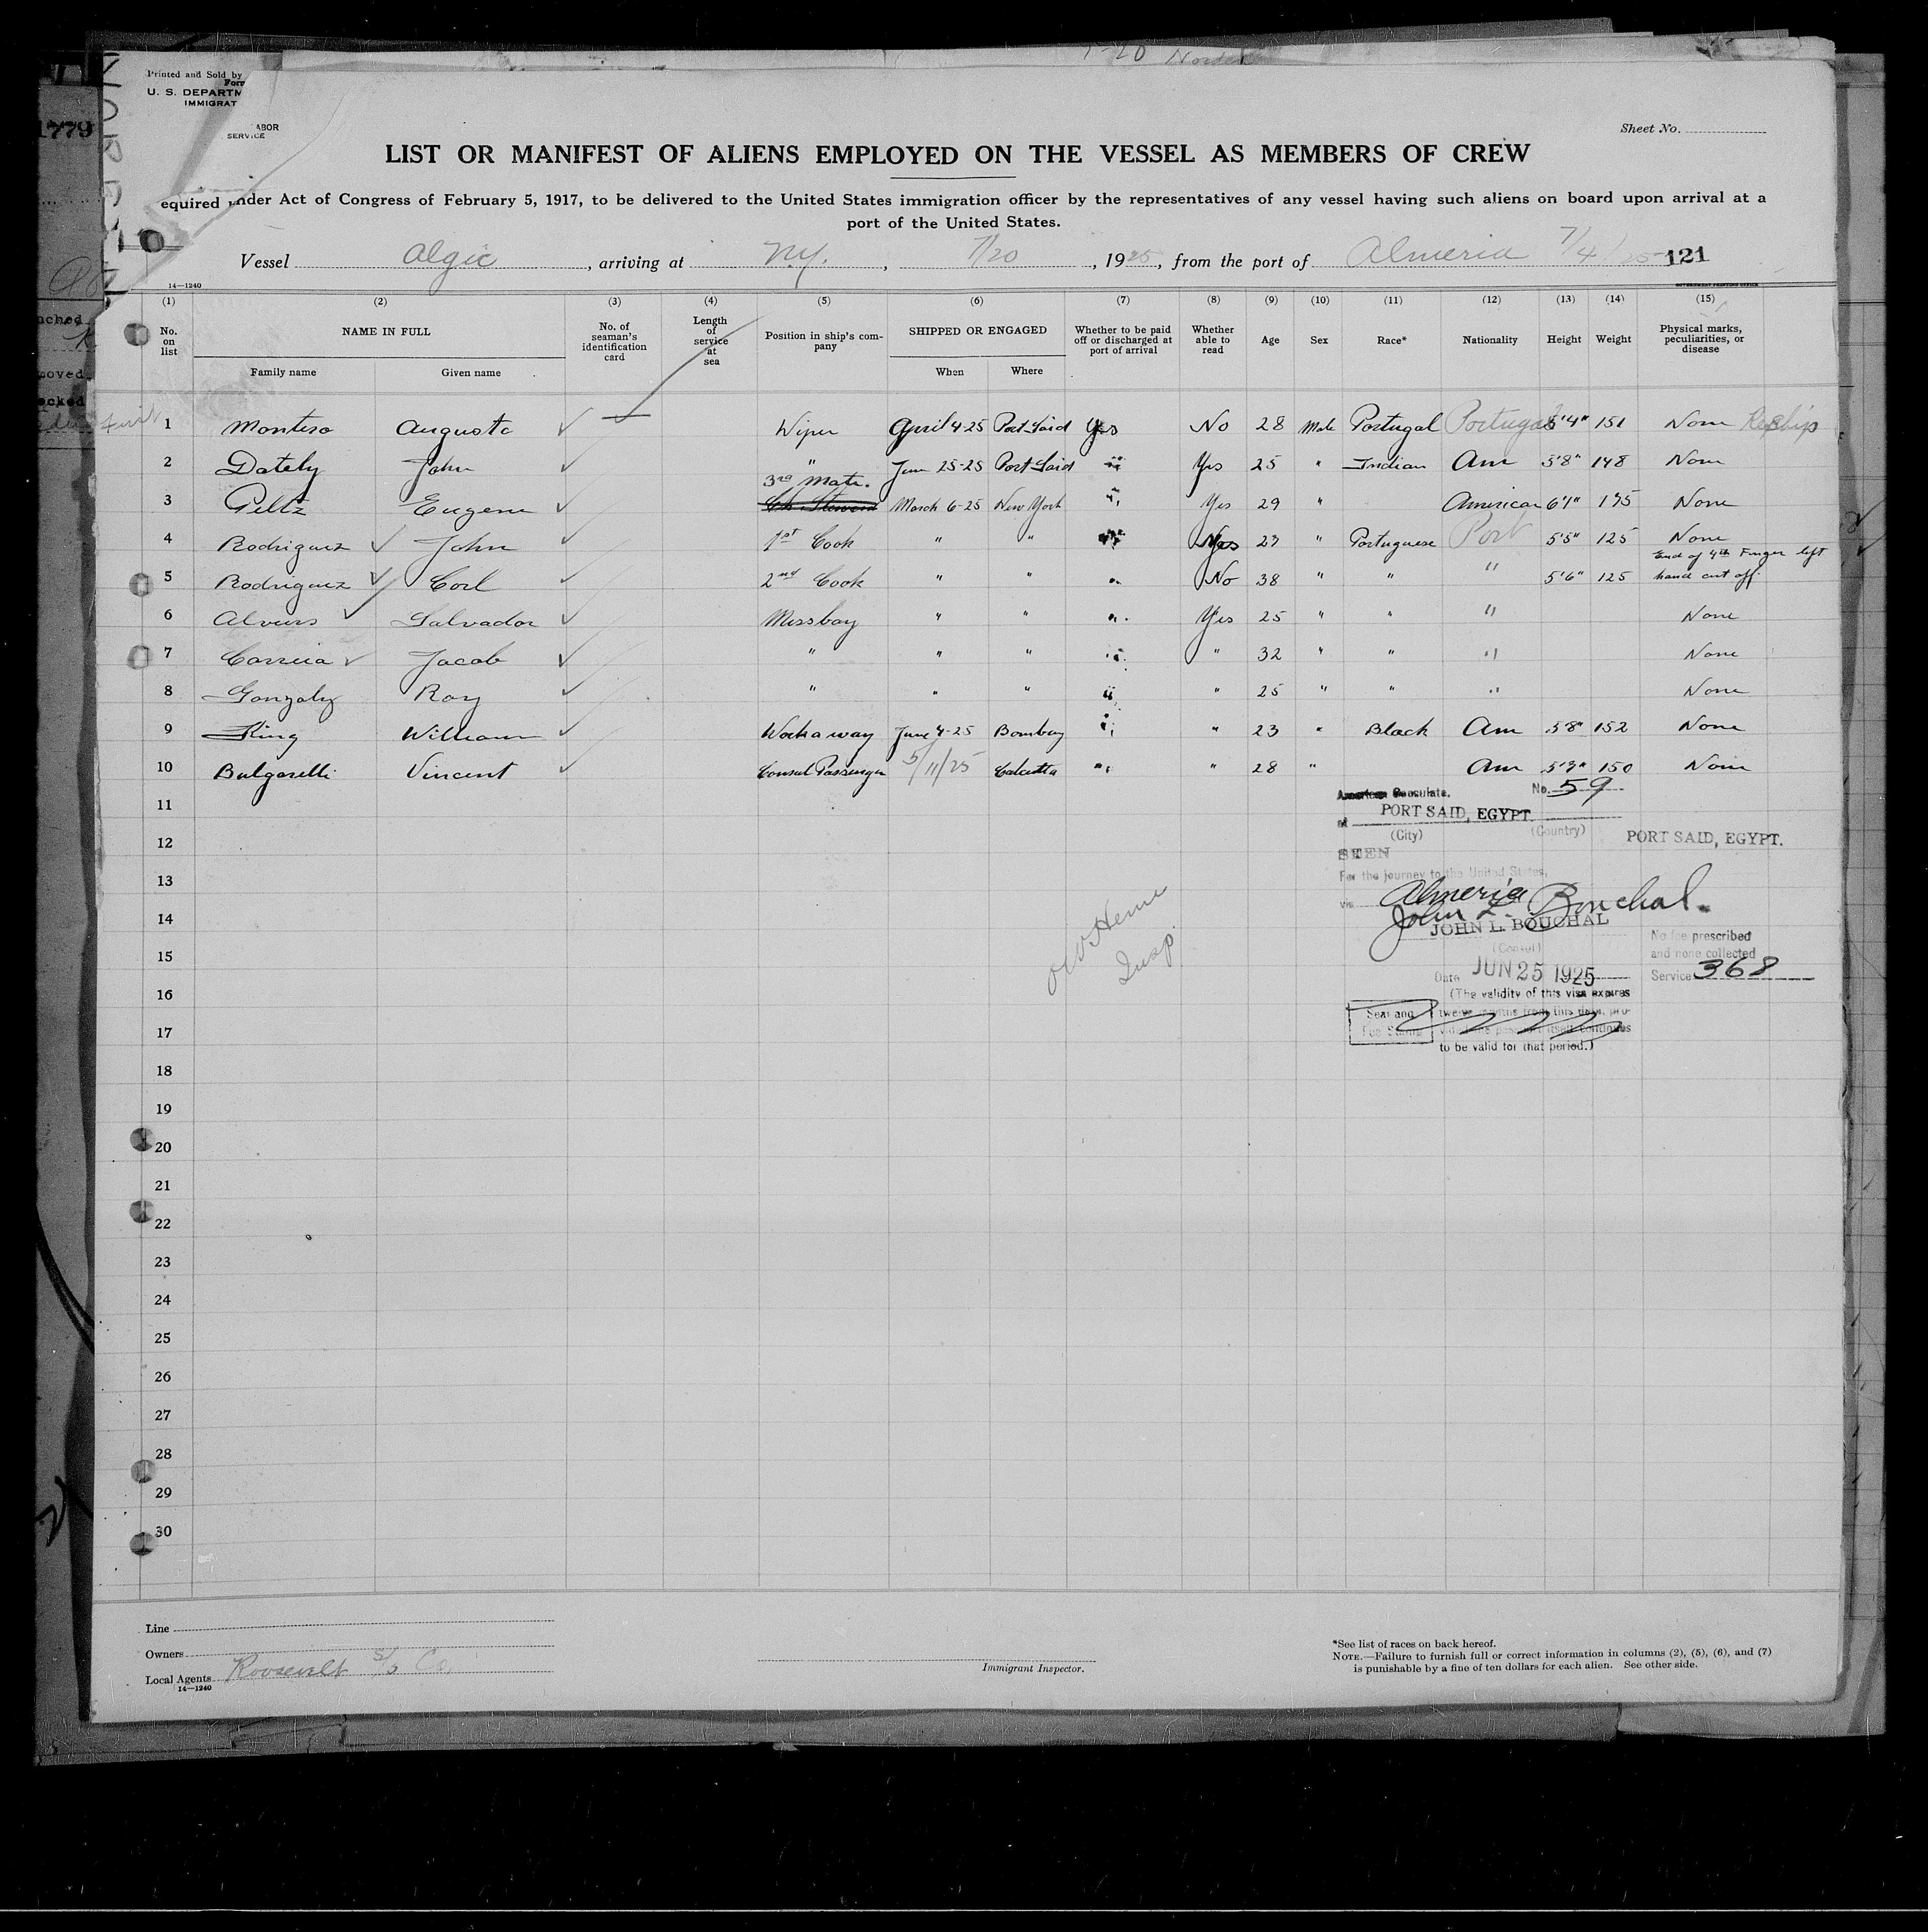 1-20
Printed and Sold by
Form
U. S. DEPARTM
IMMIGRAT
ABOR
SERVICE
1779
Sheet No.
LIST OR MANIFEST OF ALIENS EMPLOYED ON THE VESSEL AS MEMBERS OF CREW
equired under Act of Congress of February 5, 1917, to be delivered to the United States immigration officer by the representatives of any vessel having such aliens on board upon arrival at a
port of the United States.
Vessel Algic, arriving at N.Y., 7/20, 1925, from the port of Almeria 7/4/25 121
14-1240
(1) (2) (3) (4) (5) (6) (7) (8) (9) (10) (11) (12) (13) (14) (15)
No. on list NAME IN FULL No. of seaman's identification card Length of service at sea Position in ship's company SHIPPED OR ENGAGED Whether to be paid off or discharged at port of arrival Whether able to read Age Sex Race* Nationality Height Weight Physical marks, peculiarities, or disease
Family name Given name When Where
1 Montero Augusto Wiper April 4-25 Port Said Yes No 28 Male Portugal Portugal 5'4" 151 None Reship
2 Dately John " June 25-25 Port Said " Yes 25 " Indian Am 5'8" 148 None
3 Peltz Eugene 3rd Mate. Ch. Steward March 6-25 New York " Yes 29 " American 6'1" 175 None
4 Rodriguez John 1st Cook " " " Yes 27 " Portuguese Port 5'5" 125 None
5 Rodriguez Carl 2nd Cook " " " No 38 " " " 5'6" 125 End of 4th Finger left hand cut off.
6 Alvers Salvador Messboy " " " Yes 25 " " " None
7 Correia Jacob " " " " " 32 " " " None
8 Gonzalez Roy " " " " " 25 " " " None
9 King William Workaway June 4-25 Bombay " " 23 " Black Am 5'8" 152 None
10 Bulgarelli Vincent Consul Passenger 5/11/25 Calcutta " " 28 " Am 5'7" 150 None
11
12
13
14
15
16
17
18
19
20
21
22
23
24
25
26
27
28
29
30
American Consulate. No. 59
at PORT SAID, EGYPT.
(City) (Country)
PORT SAID, EGYPT.
SEEN
For the journey to the United States,
via Almeria
John L. Bouchal.
JOHN L. BOUCHAL
(Consul)
No fee prescribed
and none collected
Date JUN 25 1925 Service 368
(The validity of this visa expires
twelve months from this date, pro-
vided the passport itself continues
to be valid for that period.)
Seal and
Fee Stamp
Insp.
Line
Owners
Local Agents Roosevelt S/S Co.
14-1240
Immigrant Inspector.
*See list of races on back hereof.
NOTE.—Failure to furnish full or correct information in columns (2), (5), (6), and (7)
is punishable by a fine of ten dollars for each alien. See other side.